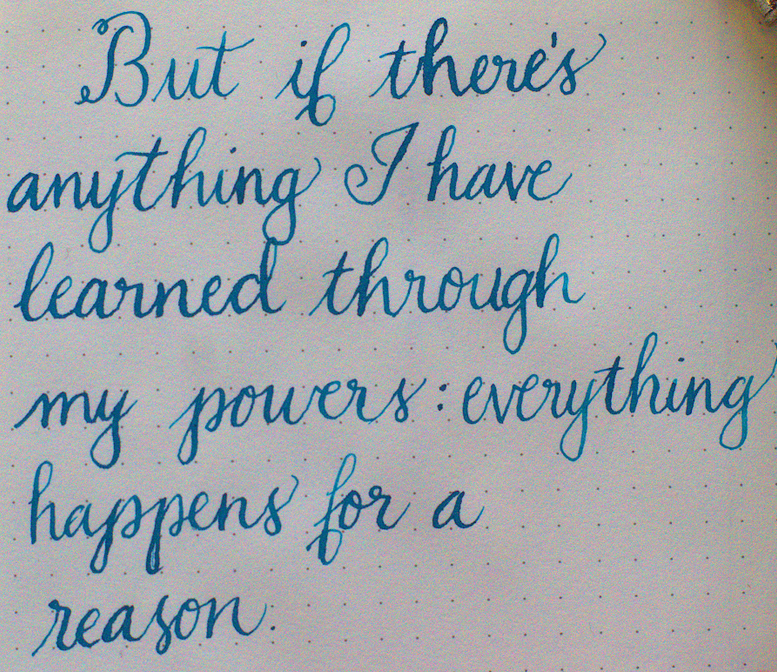 But if there's
anything I have
learned through
my powers: everything
happens for a
reason.